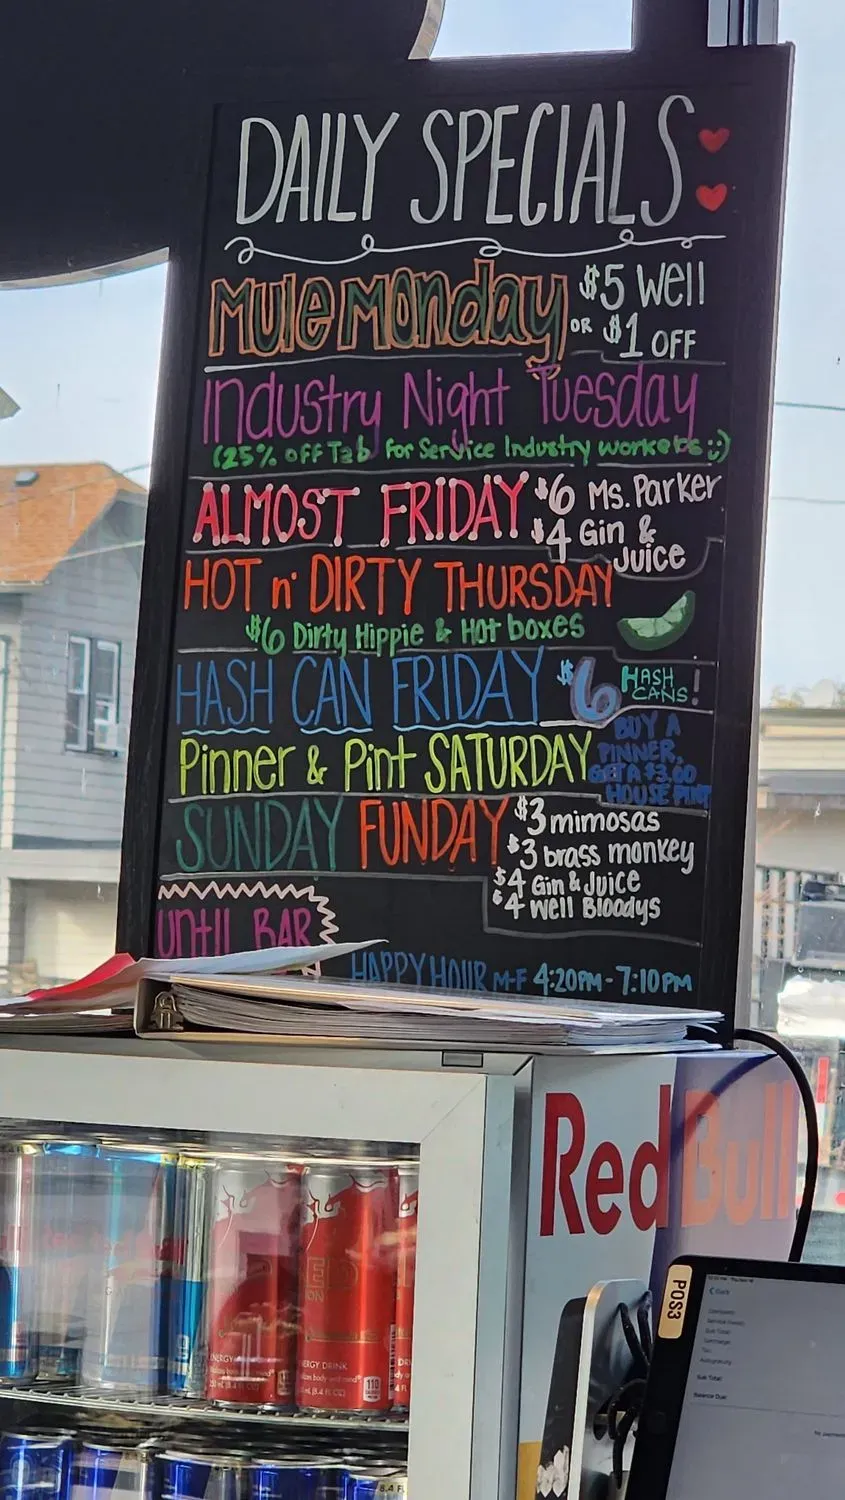 DAILY SPECIALS
Mule Monday $5 Well
OR $1 OFF
Industry Night Tuesday
(25% OFF Tab for Service Industry workers :)
ALMOST FRIDAY $6 Ms. Parker
$4 Gin & Juice
HOT n' DIRTY THURSDAY
$6 Dirty Hippie & Hot boxes
HASH CAN FRIDAY $6 HASH CANS!
Pinner & Pint SATURDAY
BUY A
PINNER,
GET A $3.00
HOUSE PINT
SUNDAY FUNDAY $3 mimosas
$3 brass monkey
$4 Gin & Juice
$4 Well Bloodys
UNTIL BAR
HAPPY HOUR M-F 4:20PM - 7:10PM
Red Bull
ENERGY DRINK
POS3
Sub Total
Balance Due